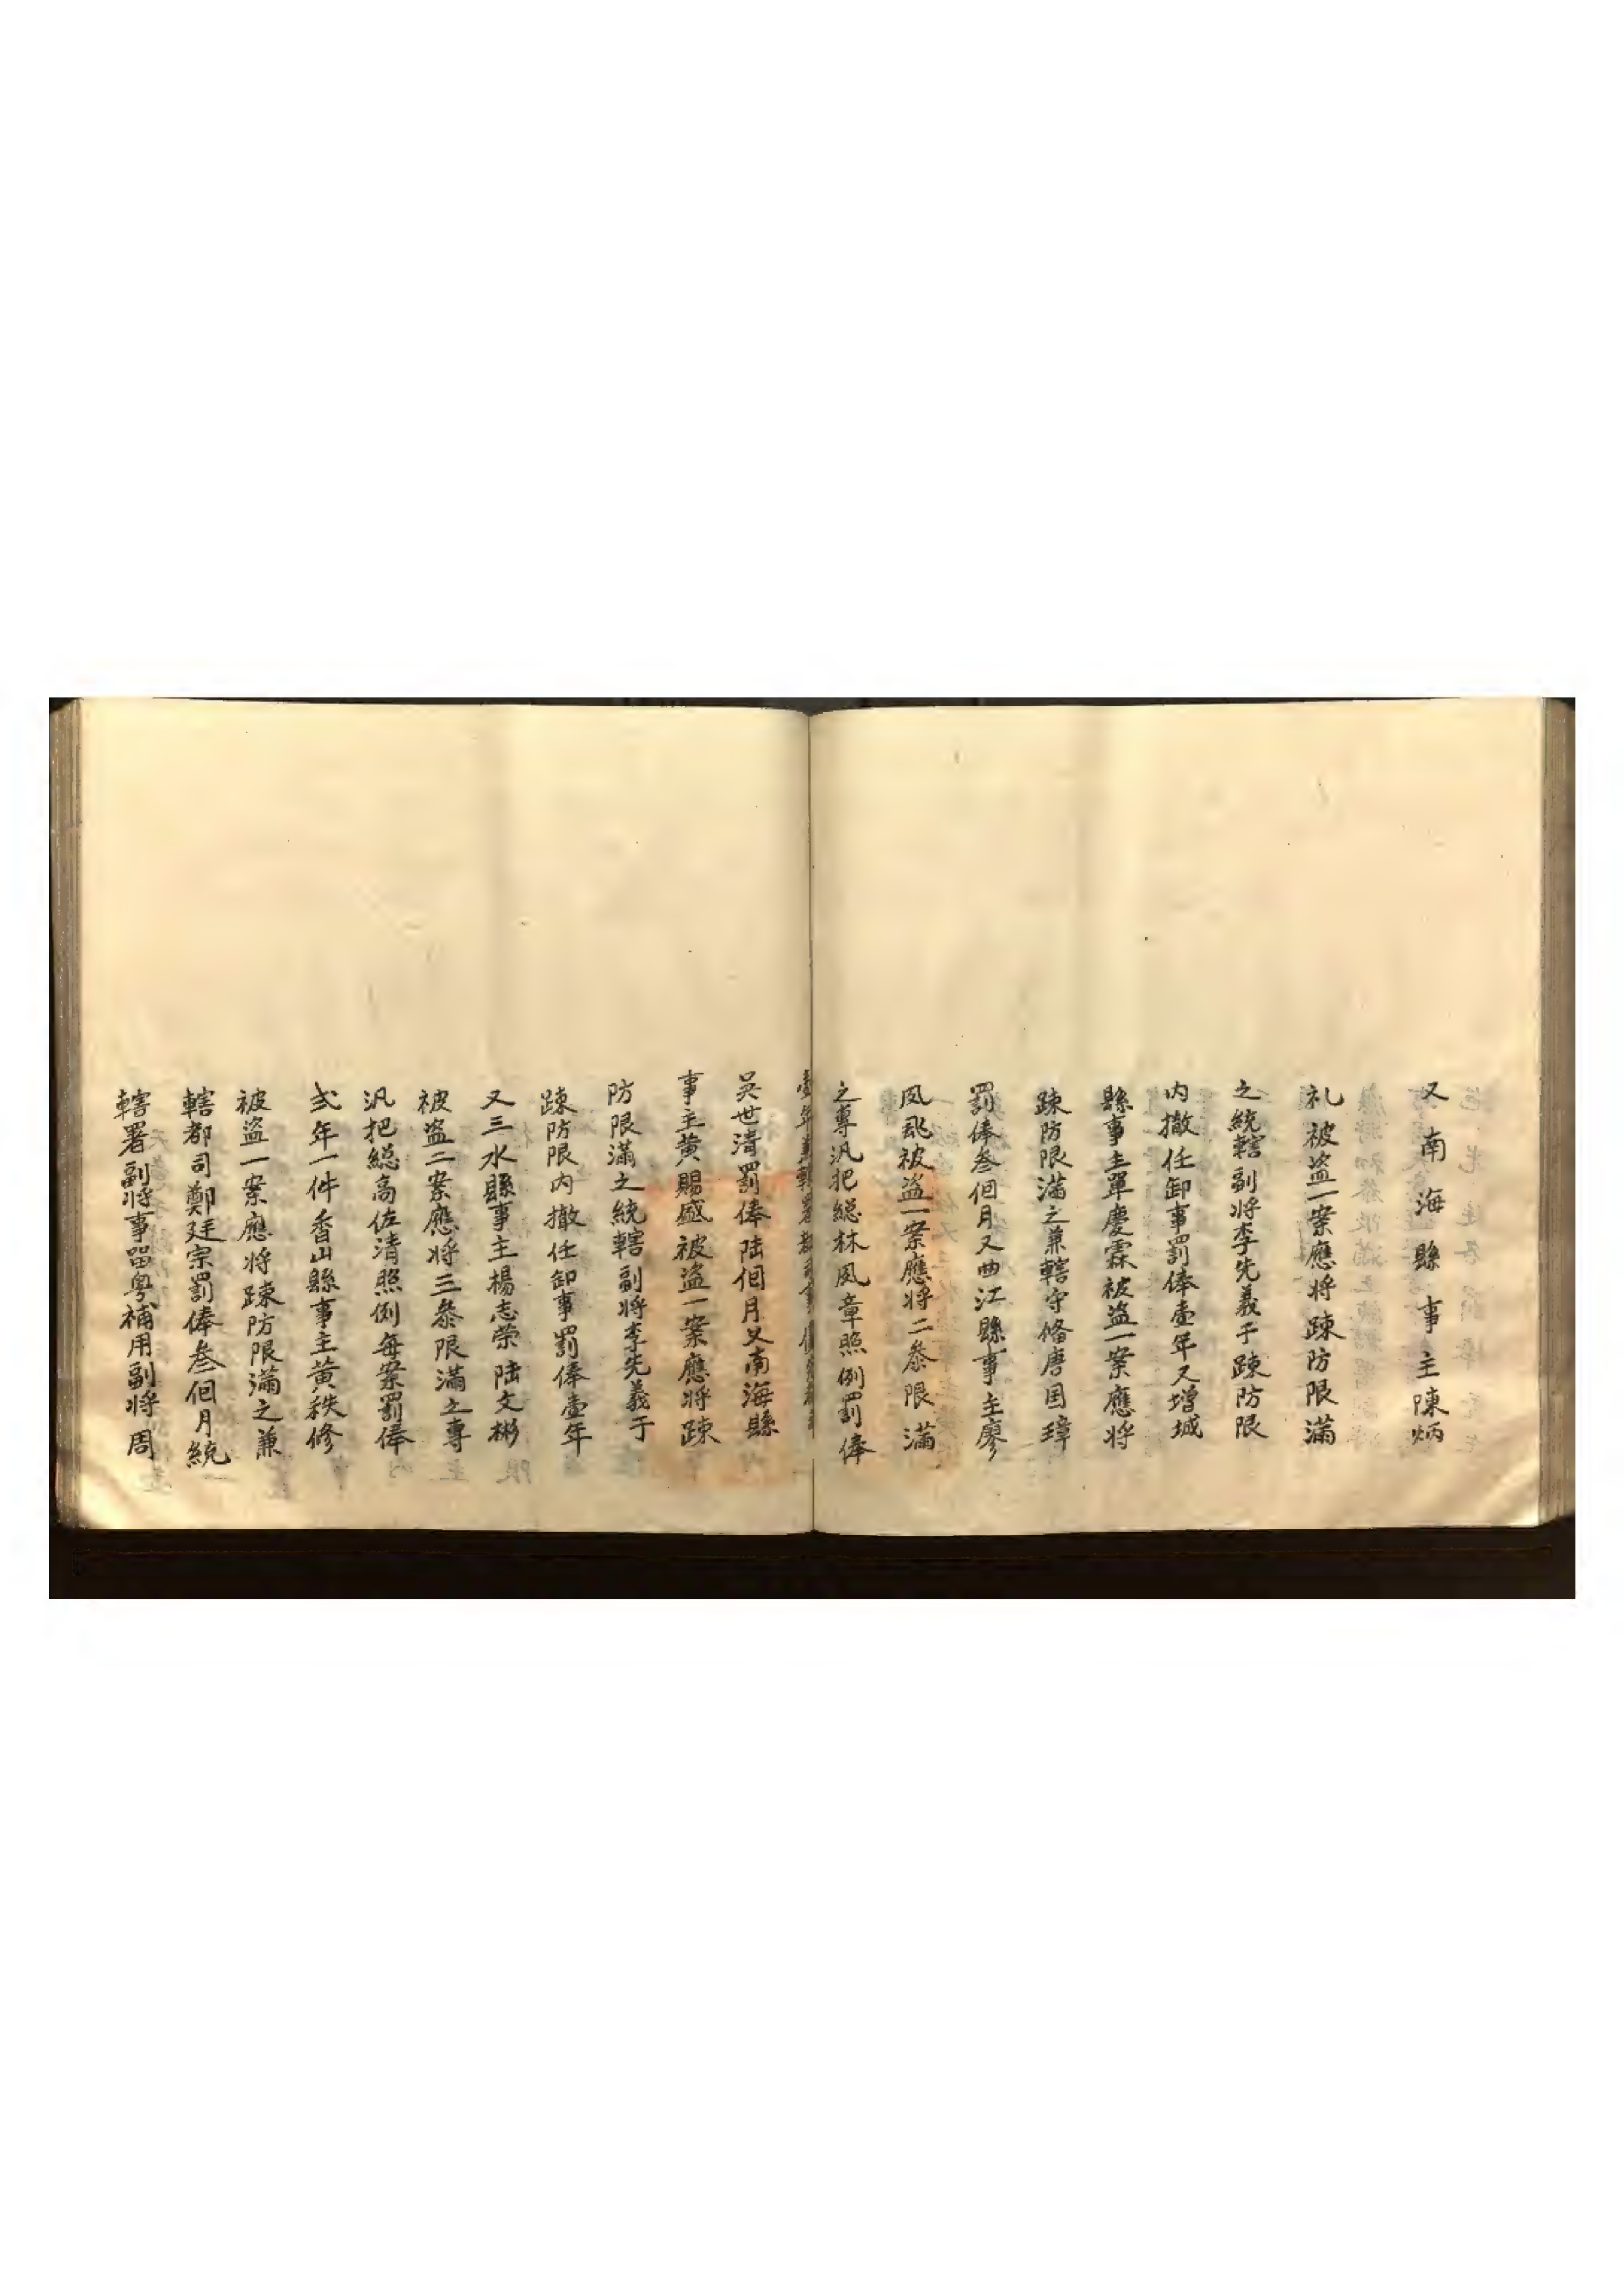 又南海縣事主陳炳
礼被盗一案應将踈防限滿
之統轄副将李先義于踈防限
内撤任卸事罰俸壹年又增城
縣事主單慶霖被盗一案應将
踈防限滿之兼轄守俻唐国璋
罰俸叁個月又曲江縣事主廖
凤飛被盗一案應将二叅限滿
之專汛把総林凤章照例罰俸
壹年兼轄署都司事
吳世清罰俸陆個月又南海縣
事主黄賜盛被盗一案應将踈
防限滿之統轄副将李先義于
踈防限内撤任卸事罰俸壹年
又三水縣事主楊志荣陆文彬
被盗二案應将三叅限滿之專
汛把総高佐清照例每案罰俸
弍年一件香山縣事主黄秩修
被盗一案應将踈防限滿之兼
轄都司鄭廷宗罰俸叁個月統
轄署副将事畄粤補用副将周